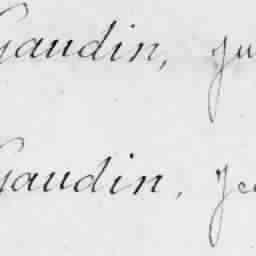 Gaudin, Ju
Gaudin, Jea